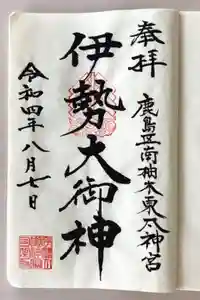 奉拝
鹿島立南柚木東天神宮
伊勢大御神
令和四年八月七日